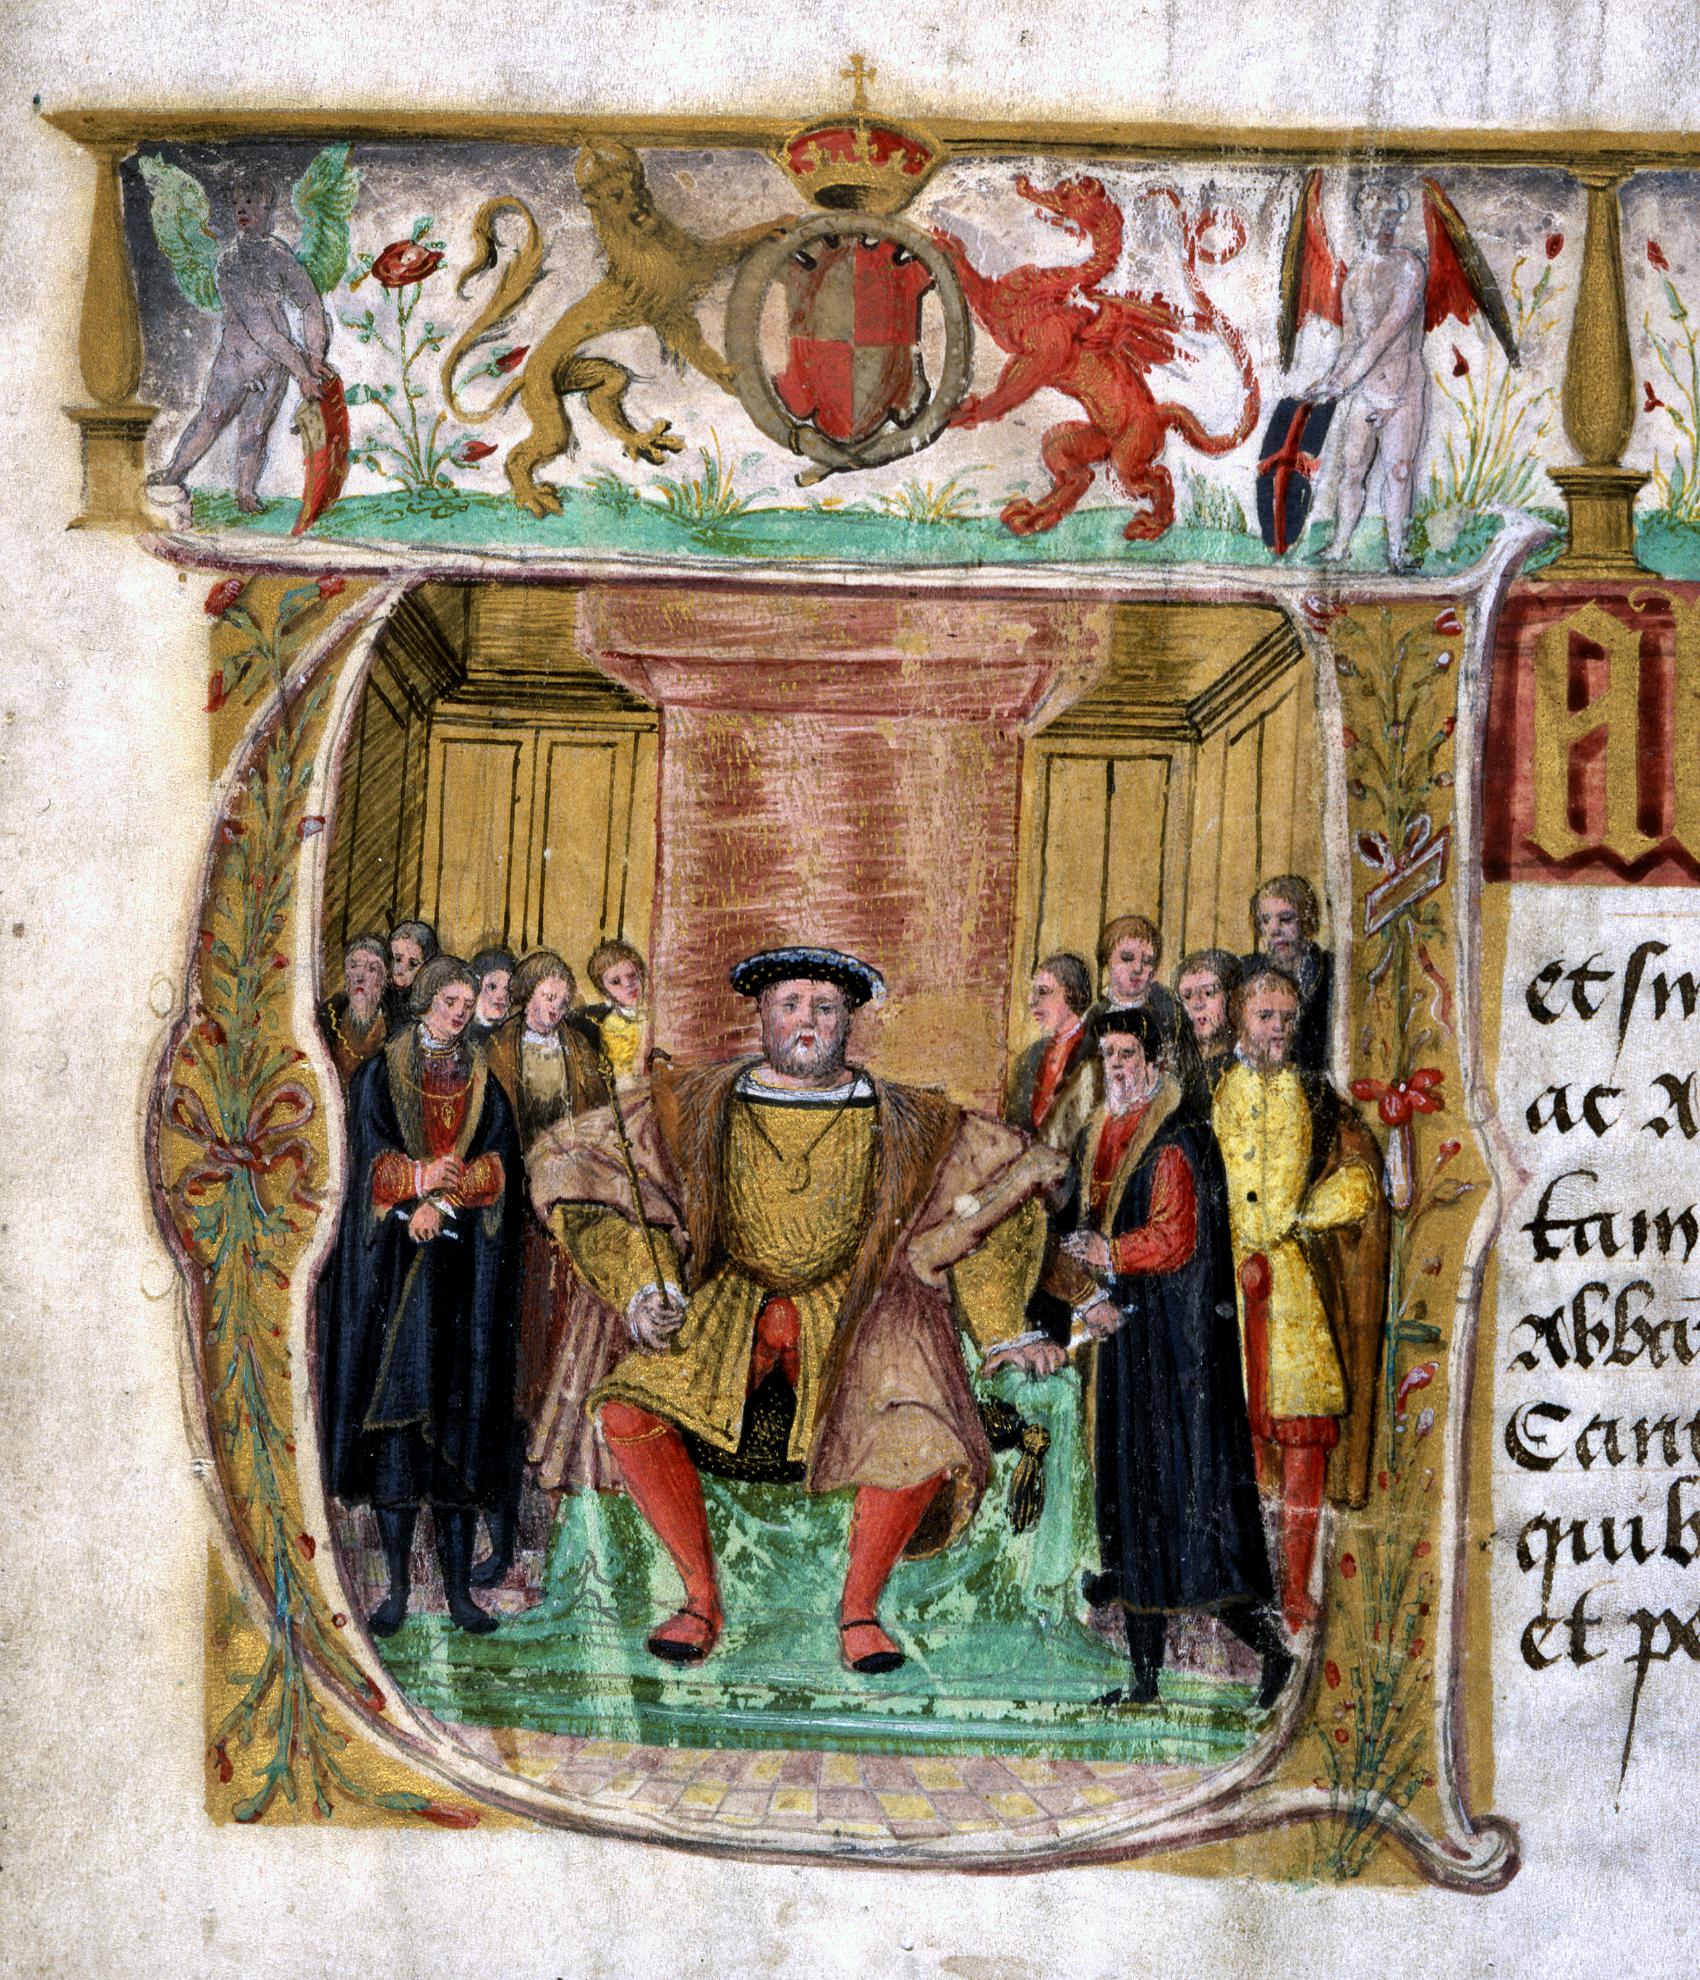 A
et sm
ac A
tam
Abba
Cant
quib
et pe